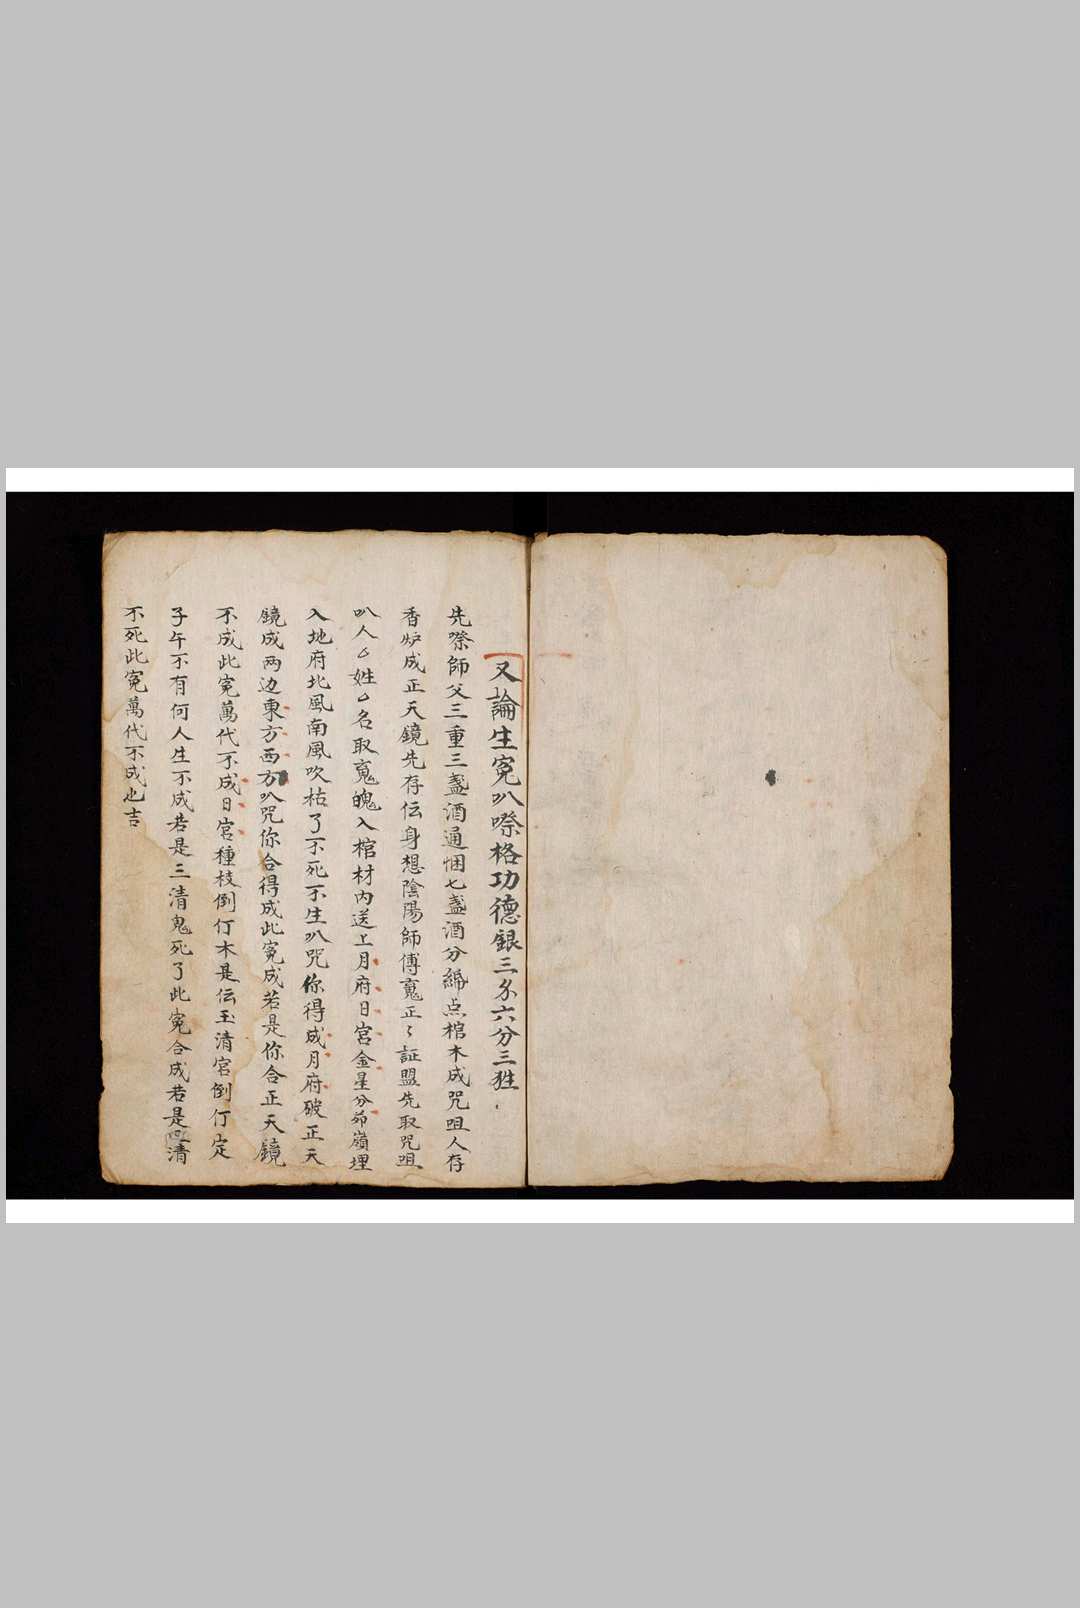 又論生寃叭嘇格功德銀三分六分三牲
先嘇師父三重三盞酒通悃七盞酒分綿点棺木成咒咀人存
香炉成正天鏡先存伝身想陰陽師傅䰟正〻証盟先取咒咀
叭人厶姓厶名取䰟魄入棺材內送上月府日宮金星分茆嶺埋
入地府北風南風吹枯了不死不生叭咒你得成月府破正天
鏡成两边東方西方叭咒你合得成此寃成若是你合正天鏡
不成此寃萬代不成日宮種枝倒仃木是伝玉清宮倒仃定
子午不有何人生不成若是三清鬼死了此寃合成若是清
不死此寃萬代不成也吉